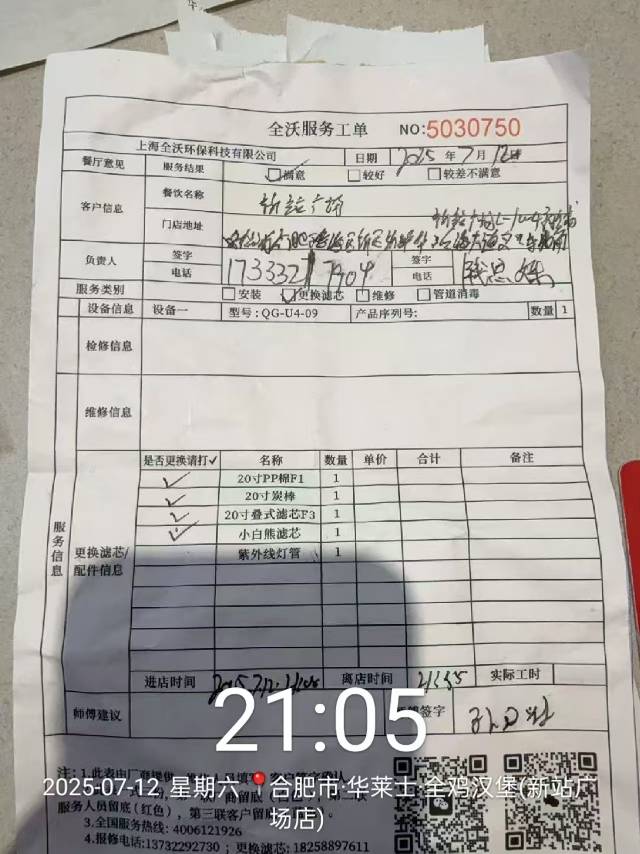 全沃服务工单 NO:5030750
上海全沃环保科技有限公司 日期 2025 年 7 月 12日
餐厅意见 服务结果 满意 较好 较差不满意
客户信息 餐饮名称 新站广场
门店地址
负责人 签字 签字
电话 17333277904 电话
服务类别 安装 更换滤芯 维修 管道消毒
设备信息 设备一 型号:QG-U4-09 产品序列号: 数量 1
检修信息
维修信息
服务信息
更换滤芯/配件信息
是否更换请打✓ 名称 数量 单价 合计 备注
✓ 20寸PP棉F1 1
✓ 20寸炭棒 1
✓ 20寸叠式滤芯F3 1
✓ 小白熊滤芯 1
紫外线灯管 1
进店时间 离店时间 实际工时
师傅建议 签字
21:05
2025-07-12 星期六 📍合肥市·华莱士·全鸡汉堡(新站广场店)
注: 1.此表由厂商提供
服务人员留底(红色), 第三联客户留底
3.全国服务热线: 4006121926
4.报修电话:13732292730 ; 更换滤芯: 18258897611